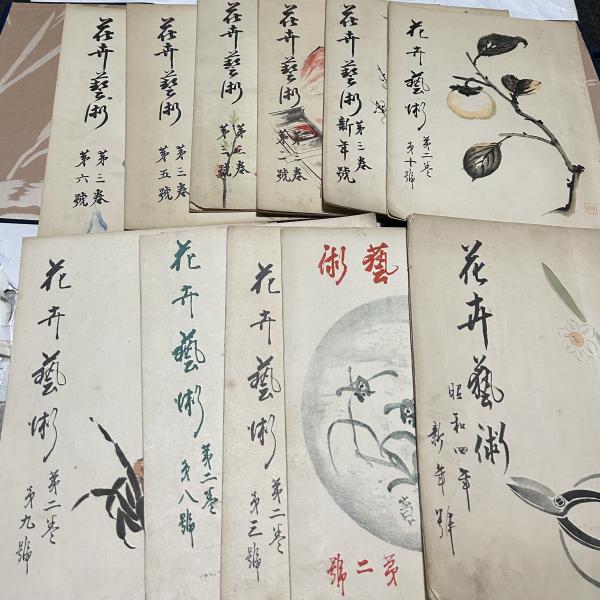 花卉藝術
第三卷
第六號
花卉藝術
第三卷
第五號
花卉藝術
第三卷
號
花卉藝術
號
花卉藝術
第三卷
新年號
花卉藝術
第二卷
第十號
花卉藝術
第二卷
第九號
花卉藝術
第二卷
第八號
花卉藝術
第二卷
第三號
藝術
第二號
花卉藝術
昭和四年
新年號